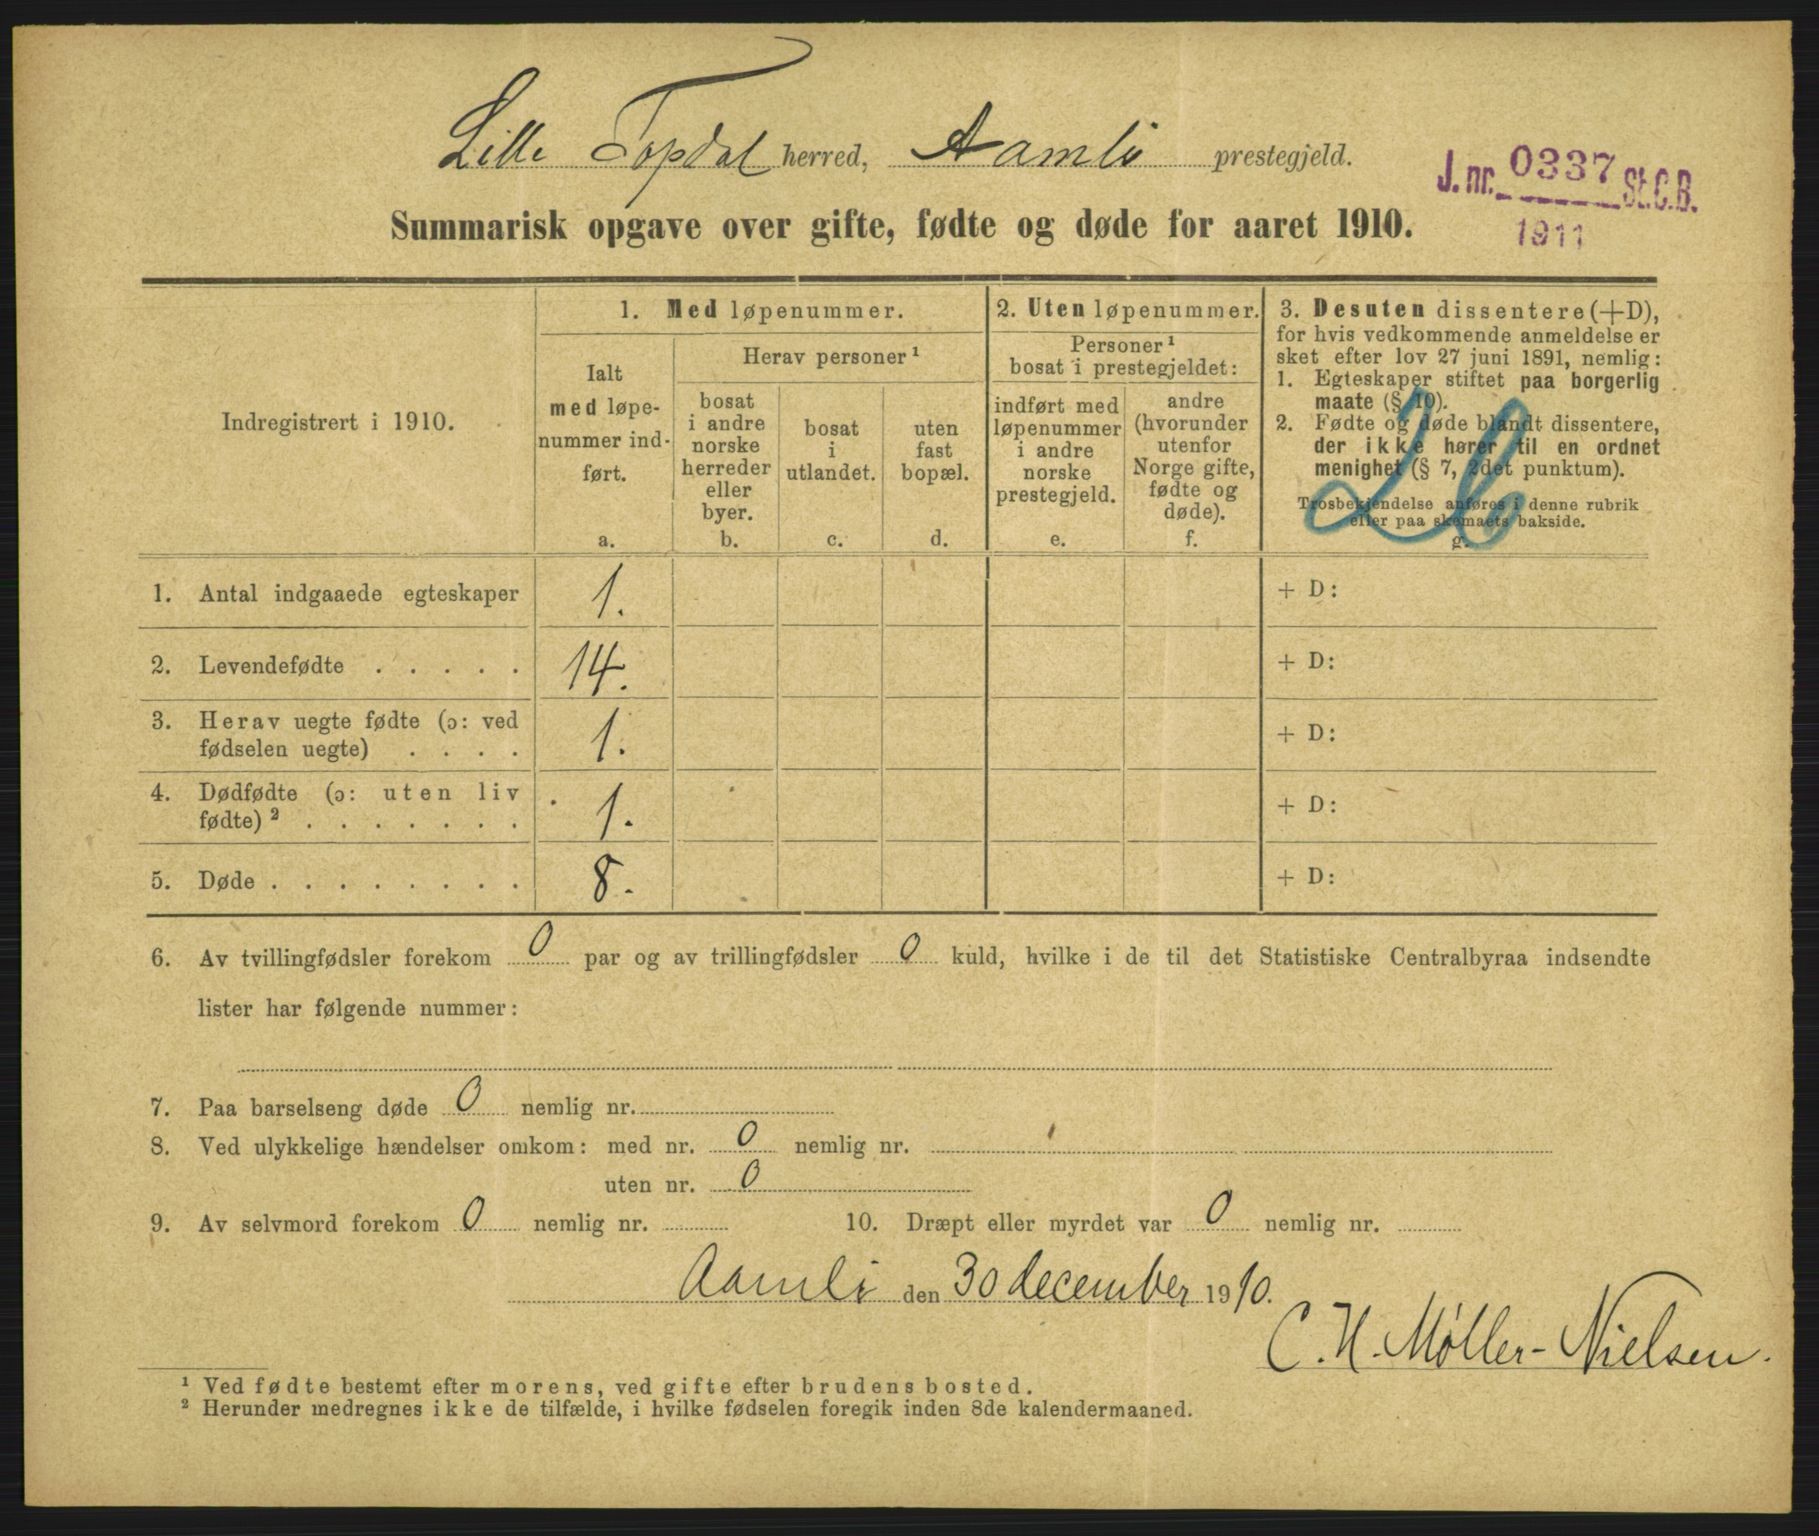 Lille Topdal herred, Aamli prestegjeld.
J. nr. 0337 St.C.B.
1911
Summarisk opgave over gifte, fødte og døde for aaret 1910.
Indregistrert i 1910.
1. Med løpenummer.
Ialt
med løpe-
nummer ind-
ført.
a.
Herav personer ¹
bosat
i andre
norske
herreder
eller
byer.
b.
bosat
i
utlandet.
c.
uten
fast
bopæl.
d.
2. Uten løpenummer.
Personer ¹
bosat i prestegjeldet:
indført med
løpenummer
i andre
norske
prestegjeld.
e.
andre
(hvorunder
utenfor
Norge gifte,
fødte og
døde).
f.
3. Desuten dissentere (+D),
for hvis vedkommende anmeldelse er
sket efter lov 27 juni 1891, nemlig:
1. Egteskaper stiftet paa borgerlig
maate (§ 10).
2. Fødte og døde blandt dissentere,
der ikke hører til en ordnet
menighet (§ 7, 2det punktum).
Trosbekjendelse anføres i denne rubrik
eller paa skemaets bakside.
g.
1. Antal indgaaede egteskaper 1. + D:
2. Levendefødte . . . . . 14. + D:
3. Herav uegte fødte (ɔ: ved
fødselen uegte) . . . . 1. + D:
4. Dødfødte (ɔ: uten liv
fødte) ² . . . . . . . 1. + D:
5. Døde . . . . . . . . 8. + D:
6. Av tvillingfødsler forekom 0 par og av trillingfødsler 0 kuld, hvilke i de til det Statistiske Centralbyraa indsendte
lister har følgende nummer:
7. Paa barselseng døde 0 nemlig nr.
8. Ved ulykkelige hændelser omkom: med nr. 0 nemlig nr.
uten nr. 0
9. Av selvmord forekom 0 nemlig nr. 10. Dræpt eller myrdet var 0 nemlig nr.
Aamli den 30 december 1910.
C. H. Møller-Nielsen.
¹ Ved fødte bestemt efter morens, ved gifte efter brudens bosted.
² Herunder medregnes ikke de tilfælde, i hvilke fødselen foregik inden 8de kalendermaaned.